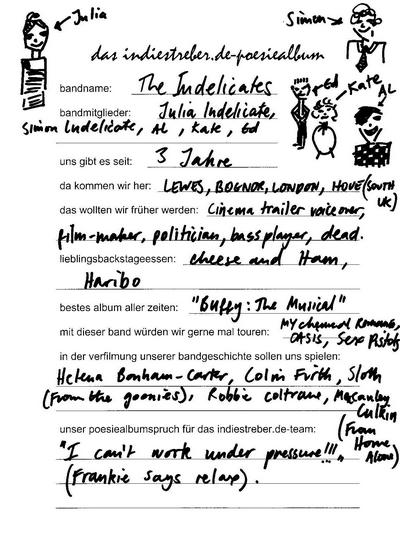 Julia
Simon
das indiestreber.de-poesiealbum
bandname: The Indelicates
Ed
Kate
AL
bandmitglieder: Julia Indelicate,
Simon Indelicate, AL, Kate, Ed
uns gibt es seit: 3 Jahre
da kommen wir her: LEWES, BOGNOR, LONDON, HOVE (SOUTH UK)
das wollten wir früher werden: cinema trailer voiceover,
film-maker, politician, bass player, dead.
lieblingsbackstageessen: cheese and Ham,
Haribo
bestes album aller zeiten: "Buffy: The Musical"
mit dieser band würden wir gerne mal touren: MY chemical Romance,
OASIS, Sex Pistols
in der verfilmung unserer bandgeschichte sollen uns spielen:
Helena Bonham-Carter, Colin Firth, Sloth
(From the goonies), Robbie coltrane, Macauley
Culkin
(From
Home
Alone)
unser poesiealbumspruch für das indiestreber.de-team:
"I can't work under pressure!!!"
(Frankie says relax).